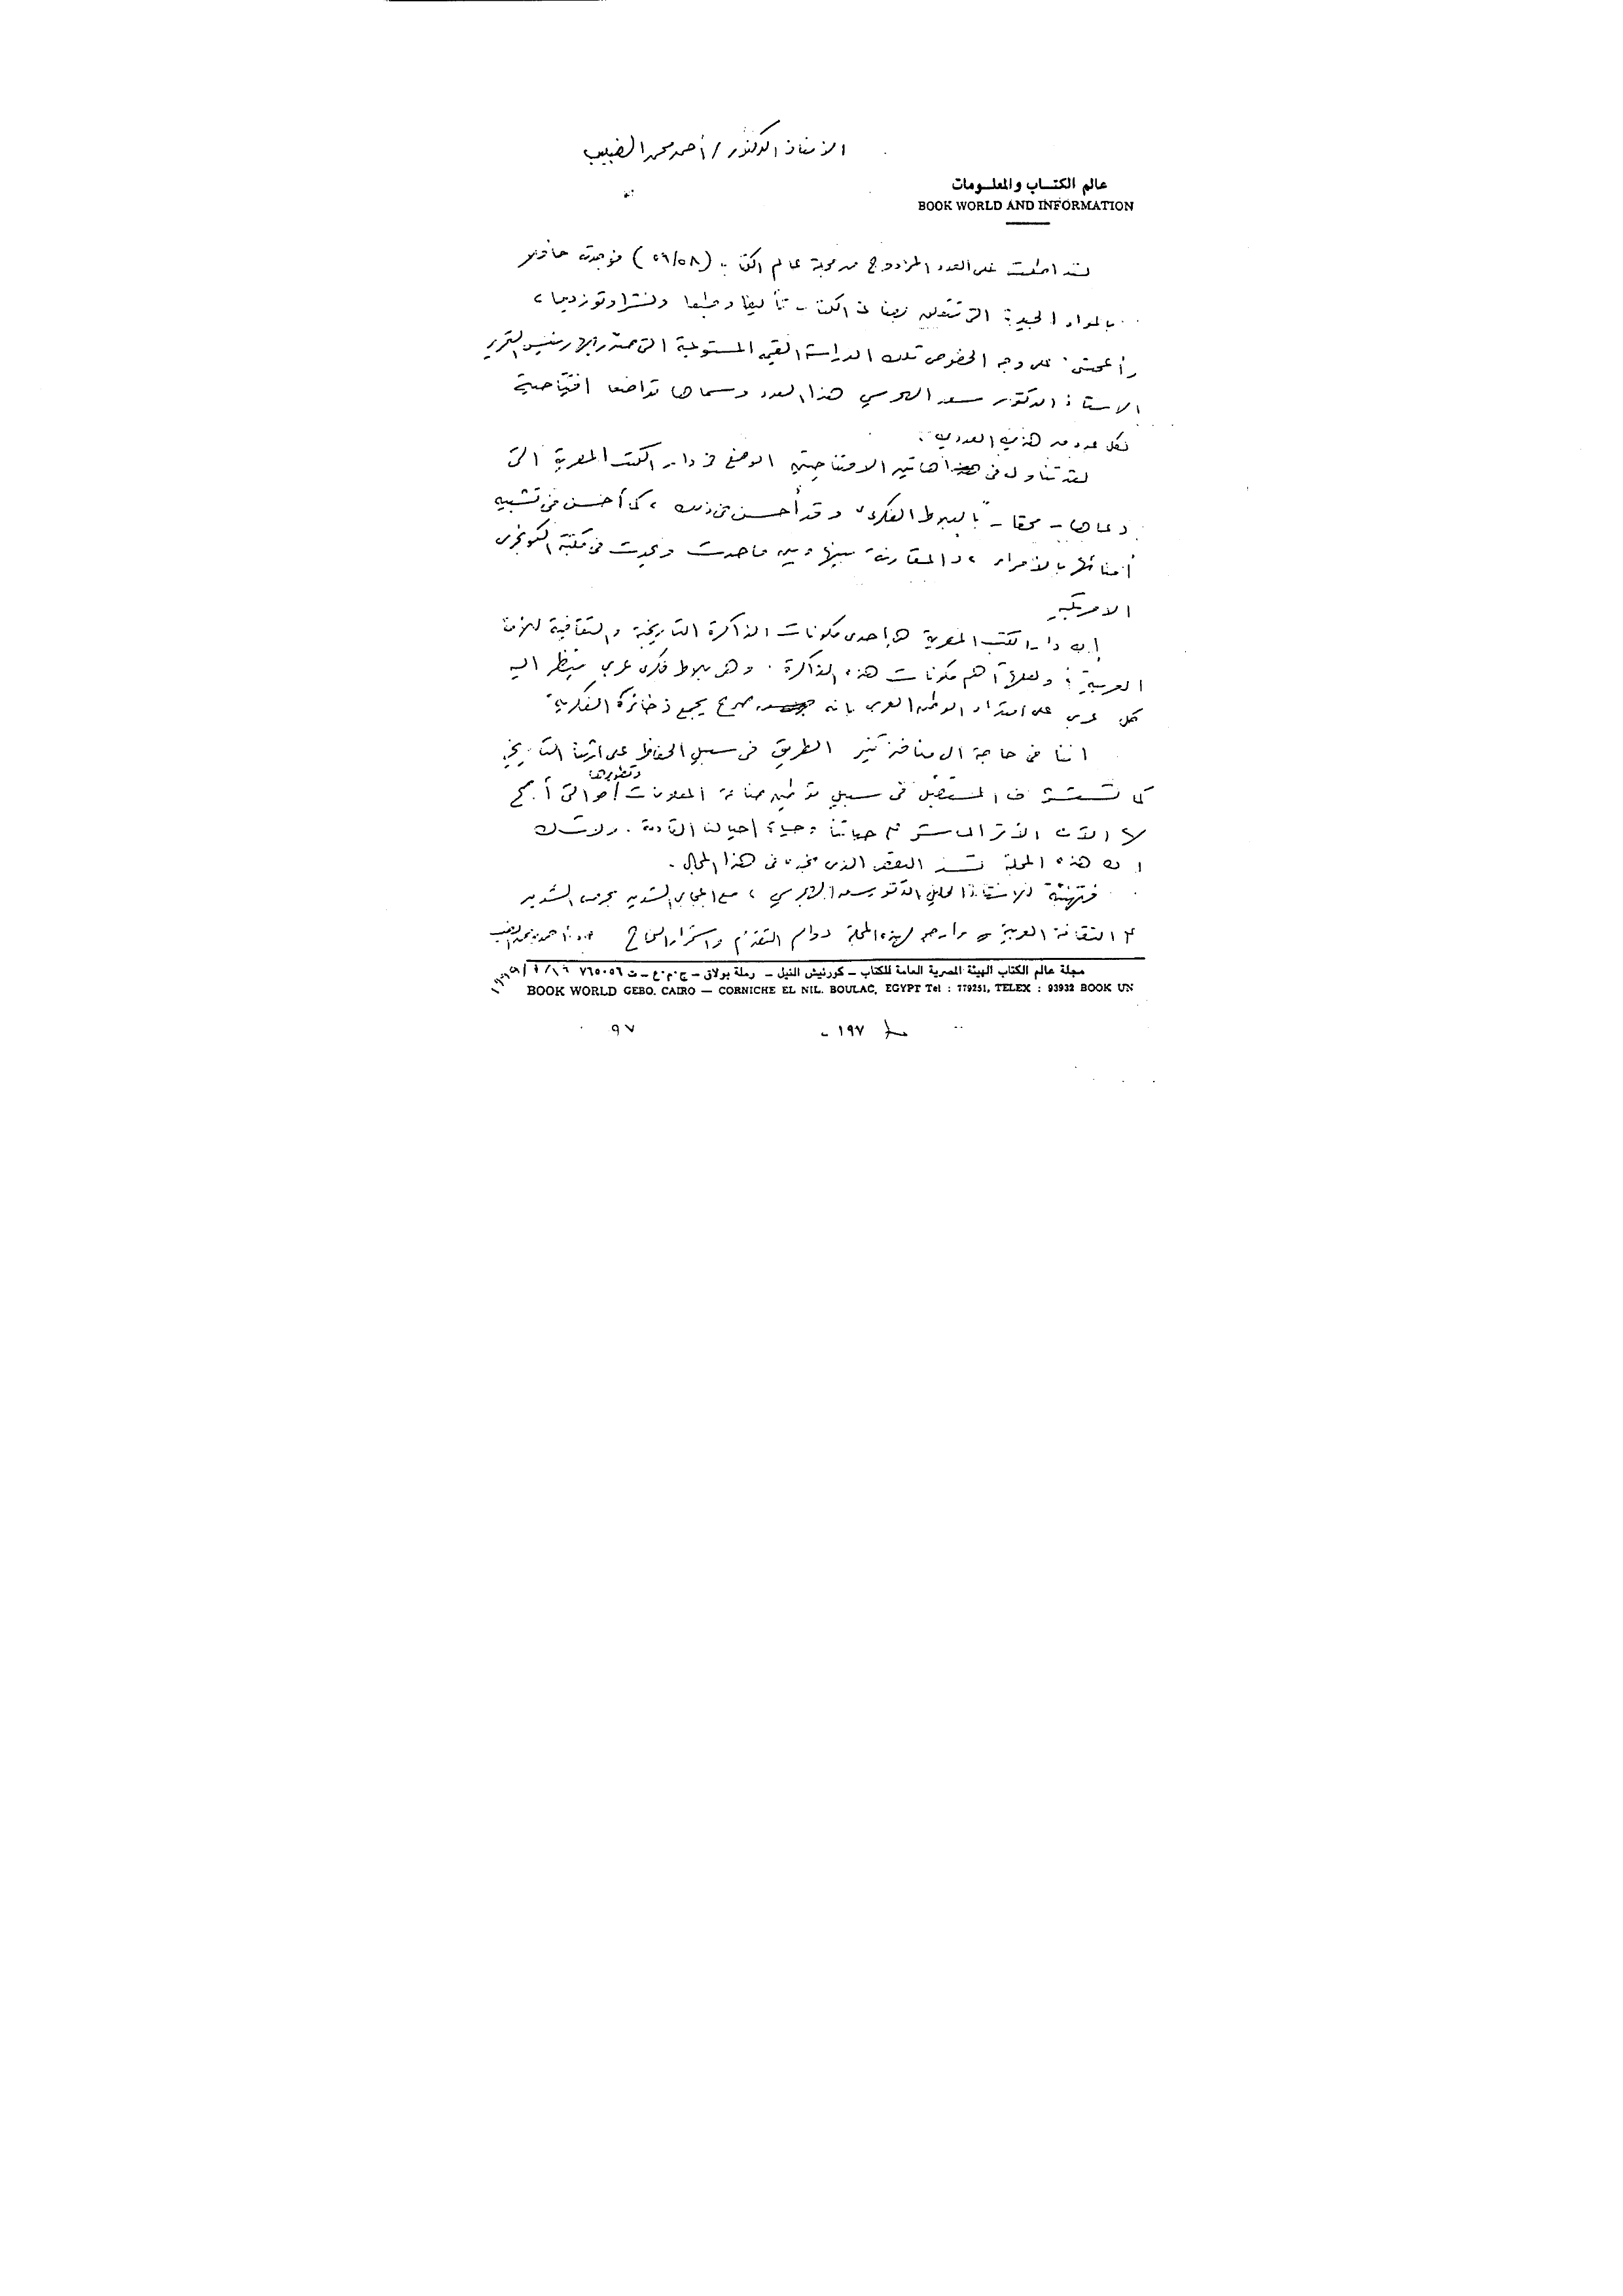 الاستاذ الدكتور / أحمد محمد الضبيب
عالم الكتـاب والمعلـومات
BOOK WORLD AND INFORMATION
لقد اطلعت على العدد المزدوج من مجلة عالم الكتاب (٥٩/٥٨) فوجدته حافلا
بالمواد الجيدة التى تتعلق بصناعة الكتاب تأليفا وطبعا ونشرا وتوزيعا ،
وأعجبتنى على وجه الخصوص تلك الدراسة القيمة المستوعبة التى صدر بها رئيس التحرير
الاستاذ الدكتور سعد الهجرسي هذا العدد وسماها تواضعا افتتاحية
لكل عدد من هذين العددين .
لقد تناول فى هاتين الافتتاحيتين الوضع فى دار الكتب المصرية التى
دعاها - محقا - "بالبلاط الفكرى" وقد أحسن فى ذلك ، كما أحسن فى تشبيه
أمنائها بالأمراء ، والمقارنة بينها وبين ما حدث ويحدث فى مكتبة الكونجرس
الامريكية
إن دار الكتب المصرية هى إحدى مكونات الذاكرة التاريخية والثقافية للأمة
العربية ؛ ولعلها أهم مكونات هذه الذاكرة . وهى بلاط فكرى عربى ينظر اليه
كل عربى على امتداد الوطن العربى بانه صرح يجمع ذخائره الفكرية .
اننا فى حاجة الى منافذ تنير الطريق فى سبيل الحفاظ على تراثنا التاريخى
كما تستشرف المستقبل فى سبيل توطين صناعة المعلومات وتطويرها والتى أصبح
لها الآن الأثر المباشر فى حياتنا وحياة اجيالنا القادمة . ولا شك
ان هذه المجلة تسد النقص الذى نجده فى هذا المجال .
فتهنئة للاستاذ الجليل الدكتور سعد الهجرسي ، مع اعجابى الشديد بحرصه الشديد
على الثقافة العربية وأرجو لهذه المجلة دوام التقدم واستمرار النجاح أ.د. أحمد بن محمد الضبيب
مجلة عالم الكتاب الهيئة المصرية العامة للكتاب - كورنيش النيل - رملة بولاق - ج.م.ع - ت ٧٦٥٠٥٦
BOOK WORLD GEBO. CAIRO — CORNICHE EL NIL. BOULAC, EGYPT Tel : 779251, TELEX : 93932 BOOK UN
١٩٧ ٩٧